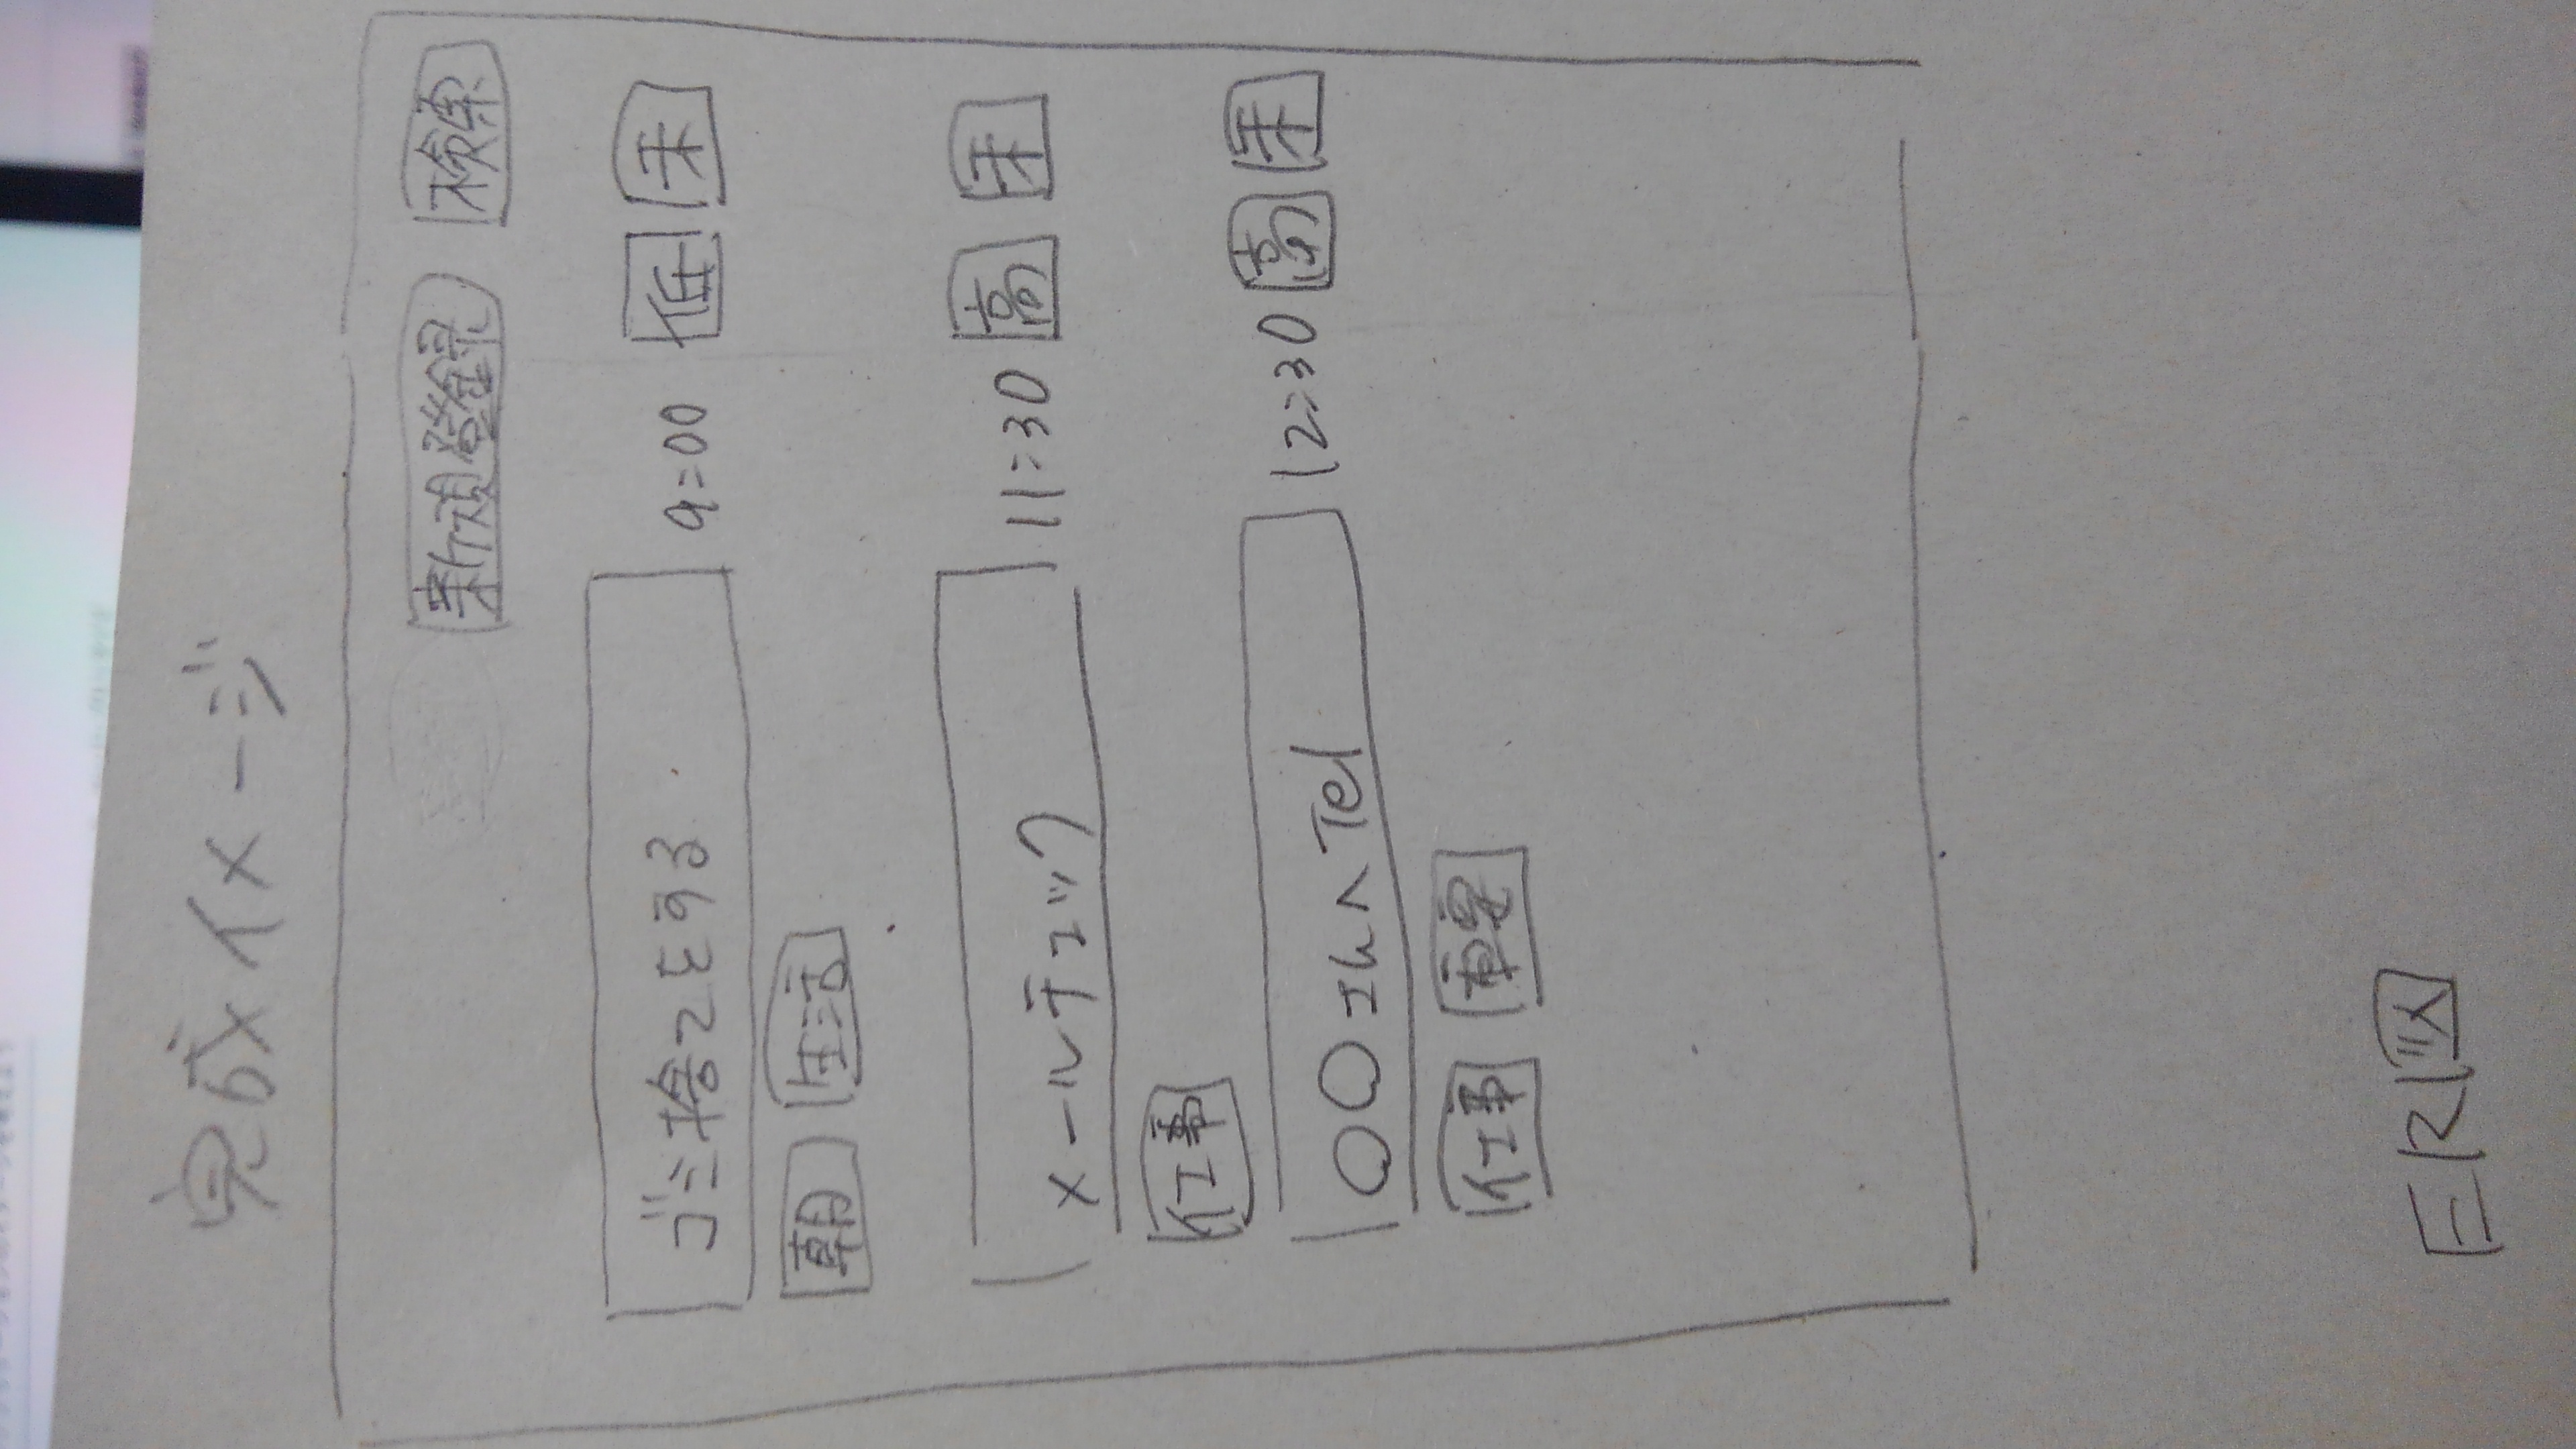 完成イメージ
新規登録 検索
ゴミ捨てをする 9:00 低 未
朝 生活
メールチェック 11:30 高 未
仕事
○○さんへTel 12:30 高 未
仕事 重要
ER図